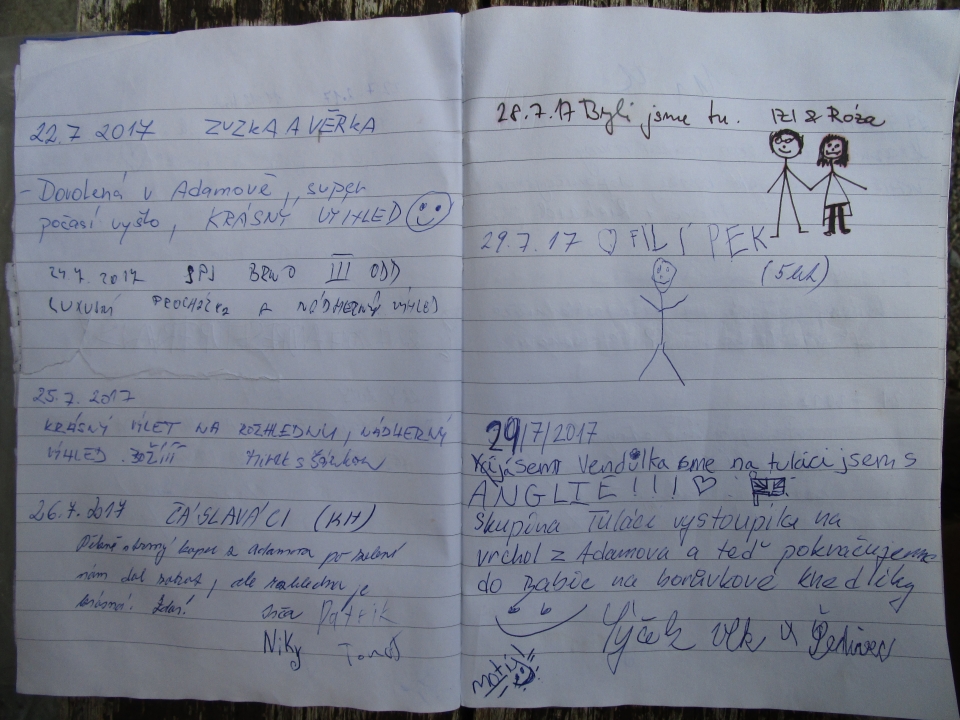 22.7 2017 ZUZKA A VĚRKA
- Dovolená v Adamově, super
počasí vyšlo, KRÁSNÝ VÝHLED
24.7. 2017 SPS BRNO III ODD
LUXUSNÍ PROCHÁZKA A NÁDHERNÝ VÝHLED
25.7. 2017
KRÁSNÝ VÝLET NA ROZHLEDNU, NÁDHERNÝ
VÝHLED
26.7. 2017 ČÁSLAVÁCI (KH)
Pěkně kopec z Adamova po zelené
nám dal zabrat, ale rozhledna je
krásná!
Patrik
Niky Tomáš
28.7.17 Byli jsme tu. IZI & Róza
29.7.17 FILÍPEK
(5let)
29/7/2017
Já jsem Vendulka sme na tuláci jsem s
ANGLIE!!!
Skupina Tuláci vystoupila na
vrchol z Adamova a teď pokračujeme
do Babic na borůvkové knedlíky
Vlk a